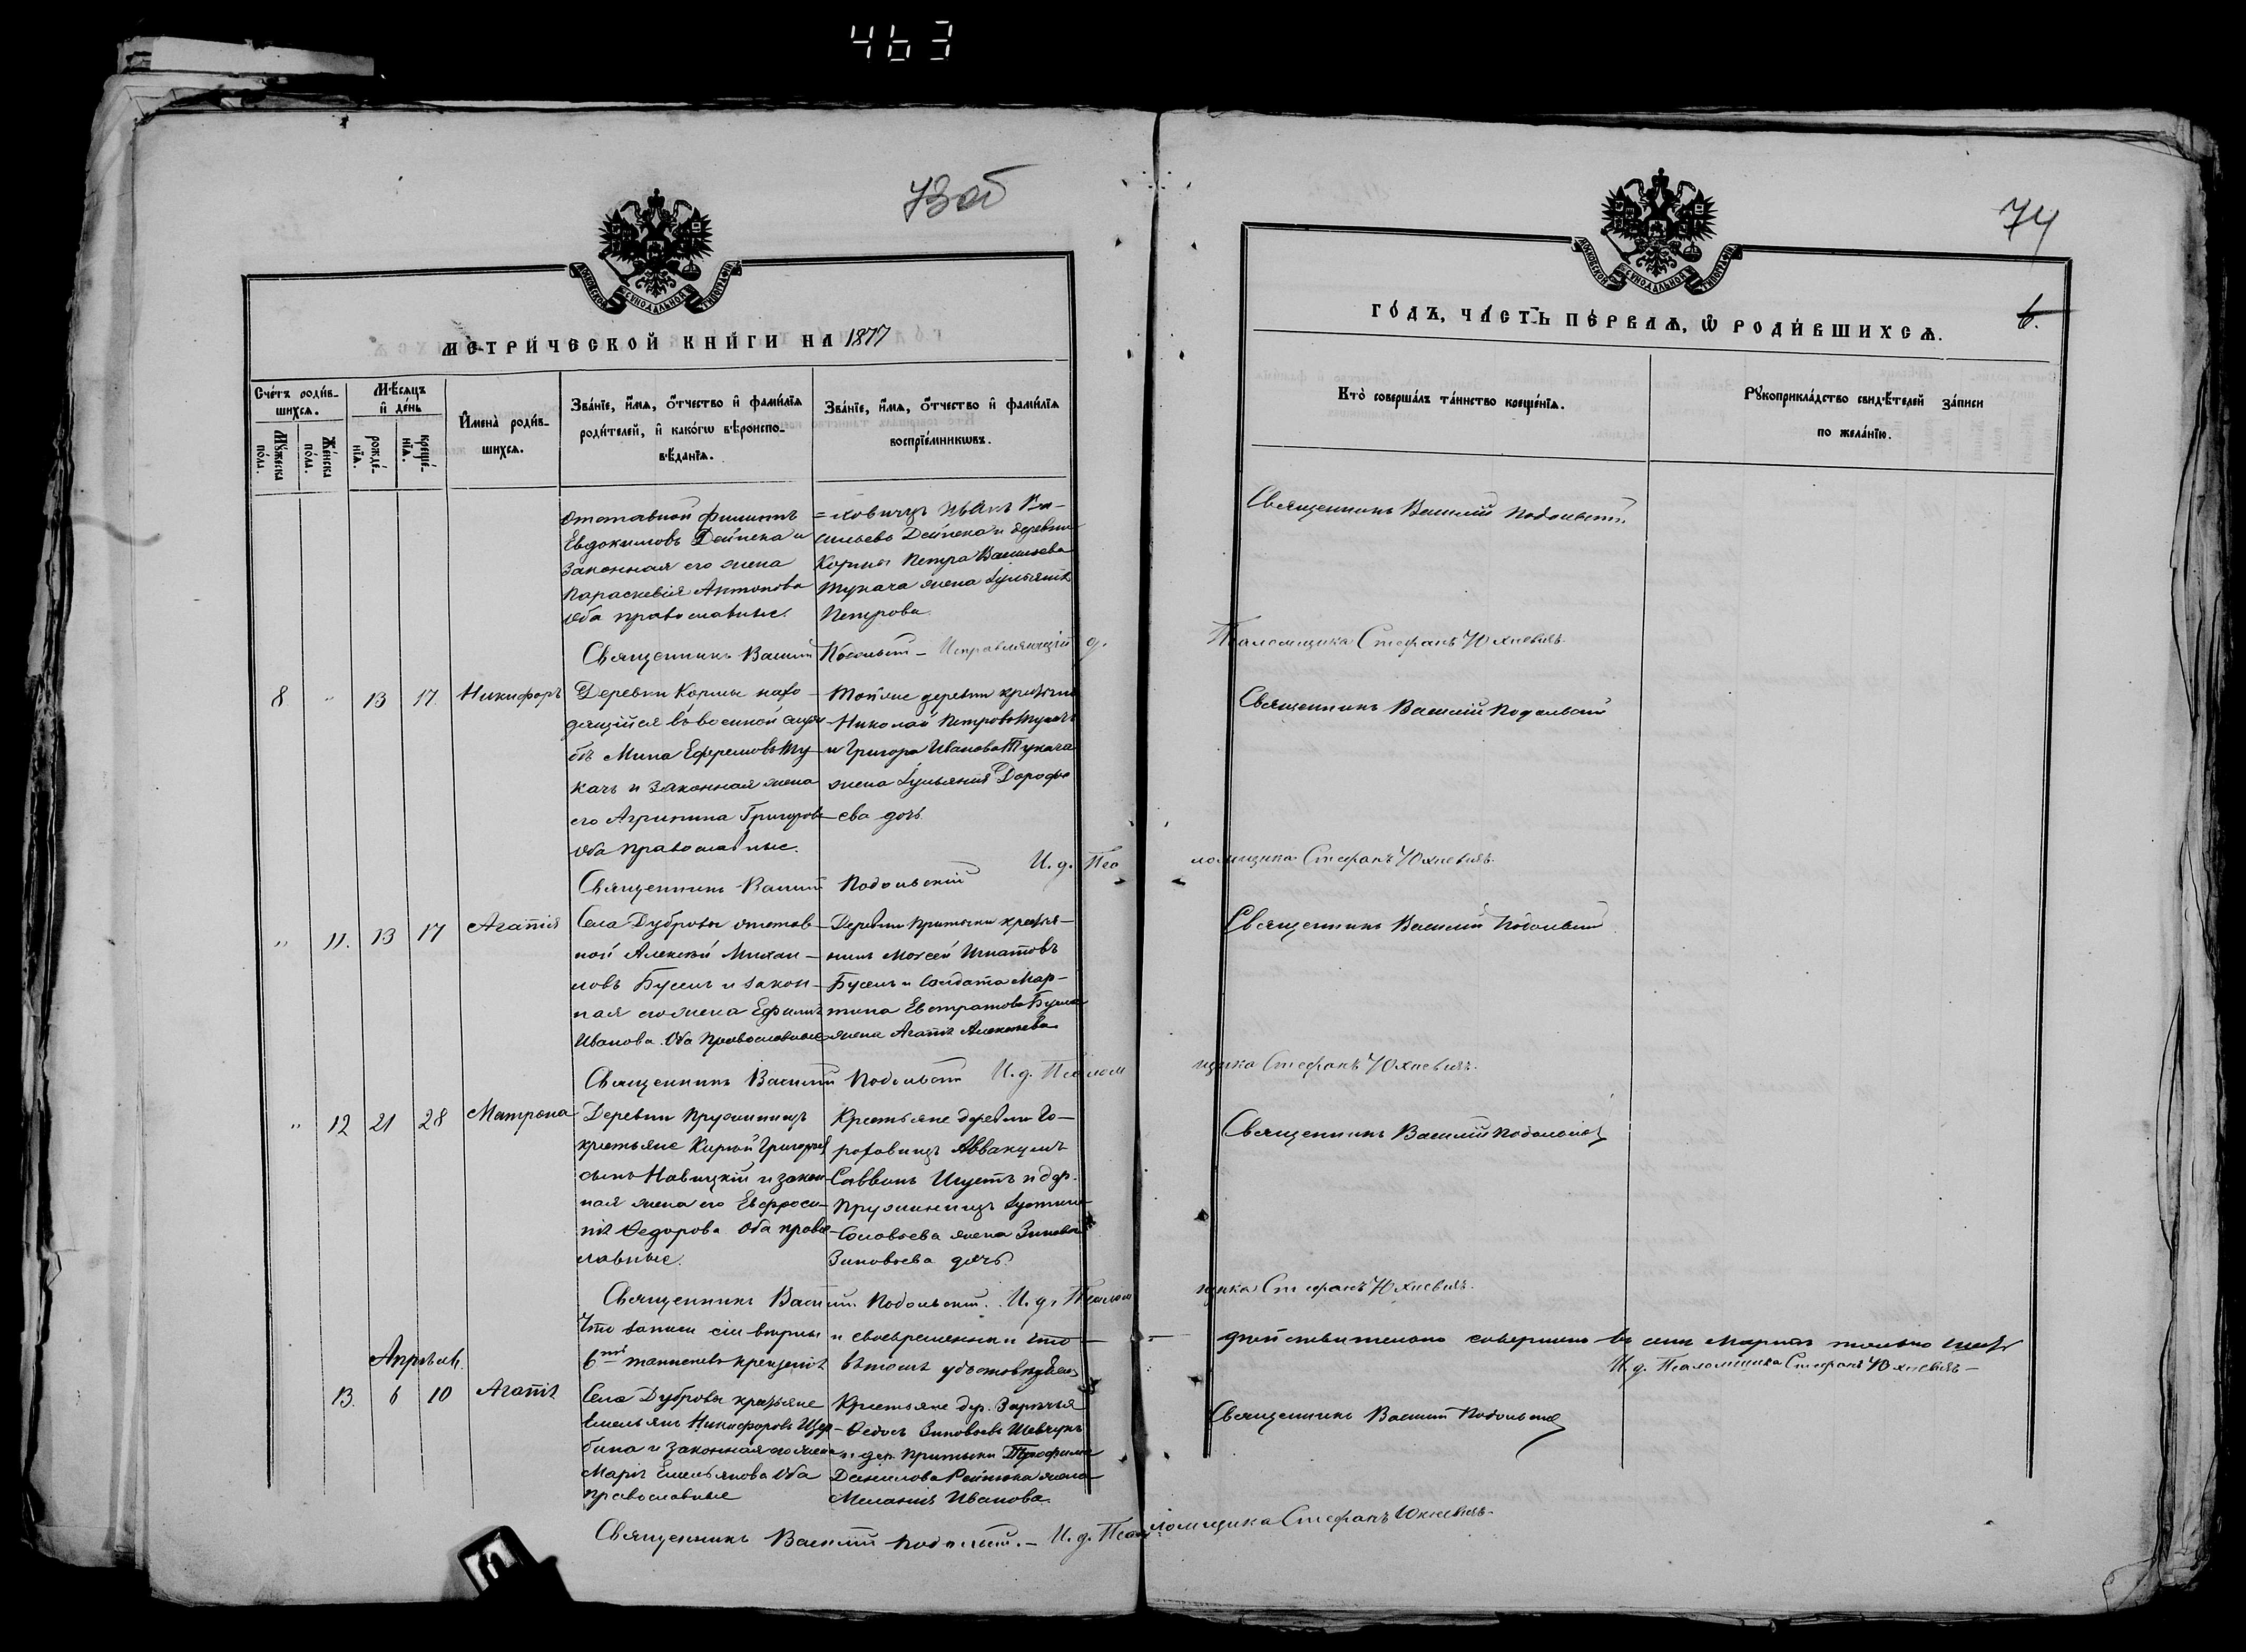 463
73об
МОСКОВСКОЙ СѴНОДАЛЬНОЙ ТИПОГРАФІИ
МЕТРИ́ЧЕСКОЙ КНИ́ГИ НА 1877
Сче́тъ роди́в-
шихсѧ.
Мѣ́сѧцъ
и҆ де́нь
Мꙋ́жеска по́ла.
Же́нска по́ла.
рожде́-
нїѧ.
креще́-
нїѧ.
И҆мена̀ роди́в-
шихсѧ.
Зва́нїе, и҆́мѧ, ѻ҆́тчество и҆ фами́лїѧ
роди́телей, и҆ како́гѡ вѣроиспо-
вѣ́данїѧ.
Зва́нїе, и҆́мѧ, ѻ҆́тчество и҆ фами́лїѧ
воспрїе́мникѡвъ.
отставной Филиппъ
Евдокимовъ Дейнека и
законная его жена
Параскевія Антонова
оба православные.
=ховичъ Иванъ Ва-
сильевъ Дейнека и деревни
Кормы Петра Васильева
Тукача жена Іульянія
Петрова.
Священникъ Василій Подольскій – Исправляющій д.
8 " 13 17. Никифоръ
Деревни Кормы нахо-
дящійся въ военной служ-
бѣ Мина Ефремовъ Ту-
качъ и законная жена
его Агрипина Григорова
оба православные.
Тойже деревни крестьян.
Николай Петровъ Тукачъ
и Григора Иванова Тукача
жена Іульянія Дорофе-
ева дочь.
Священникъ Василій Подольскій И. д. Пса
" 11. 13 17 Агапія
Села Дубровы отстав-
ной Алексѣй Михаи-
ловъ Бусель и закон-
ная его жена Ефимія
Иванова. Оба православные
Деревни Притыки крестья-
нинъ Моисей Игнатовъ
Бусель и солдата Мар-
тина Евстратова Бусла
жена Агапія Алексеева
Священникъ Василій Подольскій И. д. Псалом
" 12 21 28 Матрона
Деревни Пружиницъ
крестьяне Кирилъ Григорьевъ
сынъ Навицкій и закон-
ная жена его Евфроси-
нія Ѳедорова оба право-
славные.
Крестьяне деревни Го-
роховищъ Аввакумъ
Саввинъ Шустъ и дер.
Пружиницъ Іустина
Соловьева жена Зиновія
Зиновьева дочь.
Священникъ Василій Подольскій. И. д. Псалом
Что записи сіи вѣрны и своевременны и что
6ть таинствъ крещенія
въ томъ удостовѣряемъ
Апрѣль.
13. 6 10 Агапія
Села Дубровы крестьяне
Емельянъ Никифоровъ Щер-
бина и законная его жена
Марія Емельянова Оба
православные
Крестьяне дер. Зарѣчья
Ѳедосъ Зиновьевъ Шевчукъ
и дер. Притыки Трофима
Данилова Рейтюка жена
Меланія Иванова.
Священникъ Василій Подольскій. – И. д. Псал
74
6.
МОСКОВСКОЙ СѴНОДАЛЬНОЙ ТИПОГРАФІИ
ГО́ДЪ, ЧА́СТЬ ПЕ́РВАѦ, Ѡ҆ РОДИ́ВШИХСѦ.
Кто̀ соверша́лъ та́инство креще́нїѧ.
Рꙋкоприкла́дство свидѣ́телей за́писи
по жела́нїю.
Священникъ Василій Подольскій
Псаломщика Стефанъ Юхневичъ.
Священникъ Василій Подольскій
ломщика Стефанъ Юхневичъ.
Священникъ Василій Подольскій
щика Стефанъ Юхневичъ.
Священникъ Василій Подольскій
щика Стефанъ Юхневичъ.
дѣйствительно совершено въ семъ Мартѣ только
И. д. Псаломщика Стефанъ Юхневичъ –
Священникъ Василій Подольскій
ломщика Стефанъ Юхневичъ.